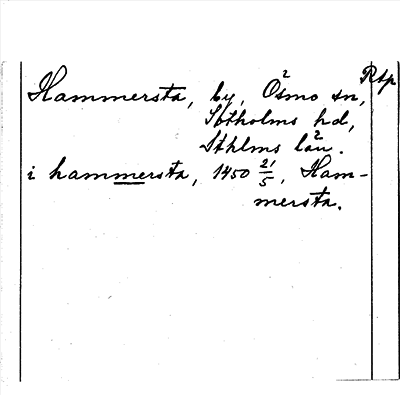 Rtp
Hammersta, by, Ösmo sn,
Sotholms hd,
Sthlms län.
i hammersta, 1450 21/5, Ham-
mersta.